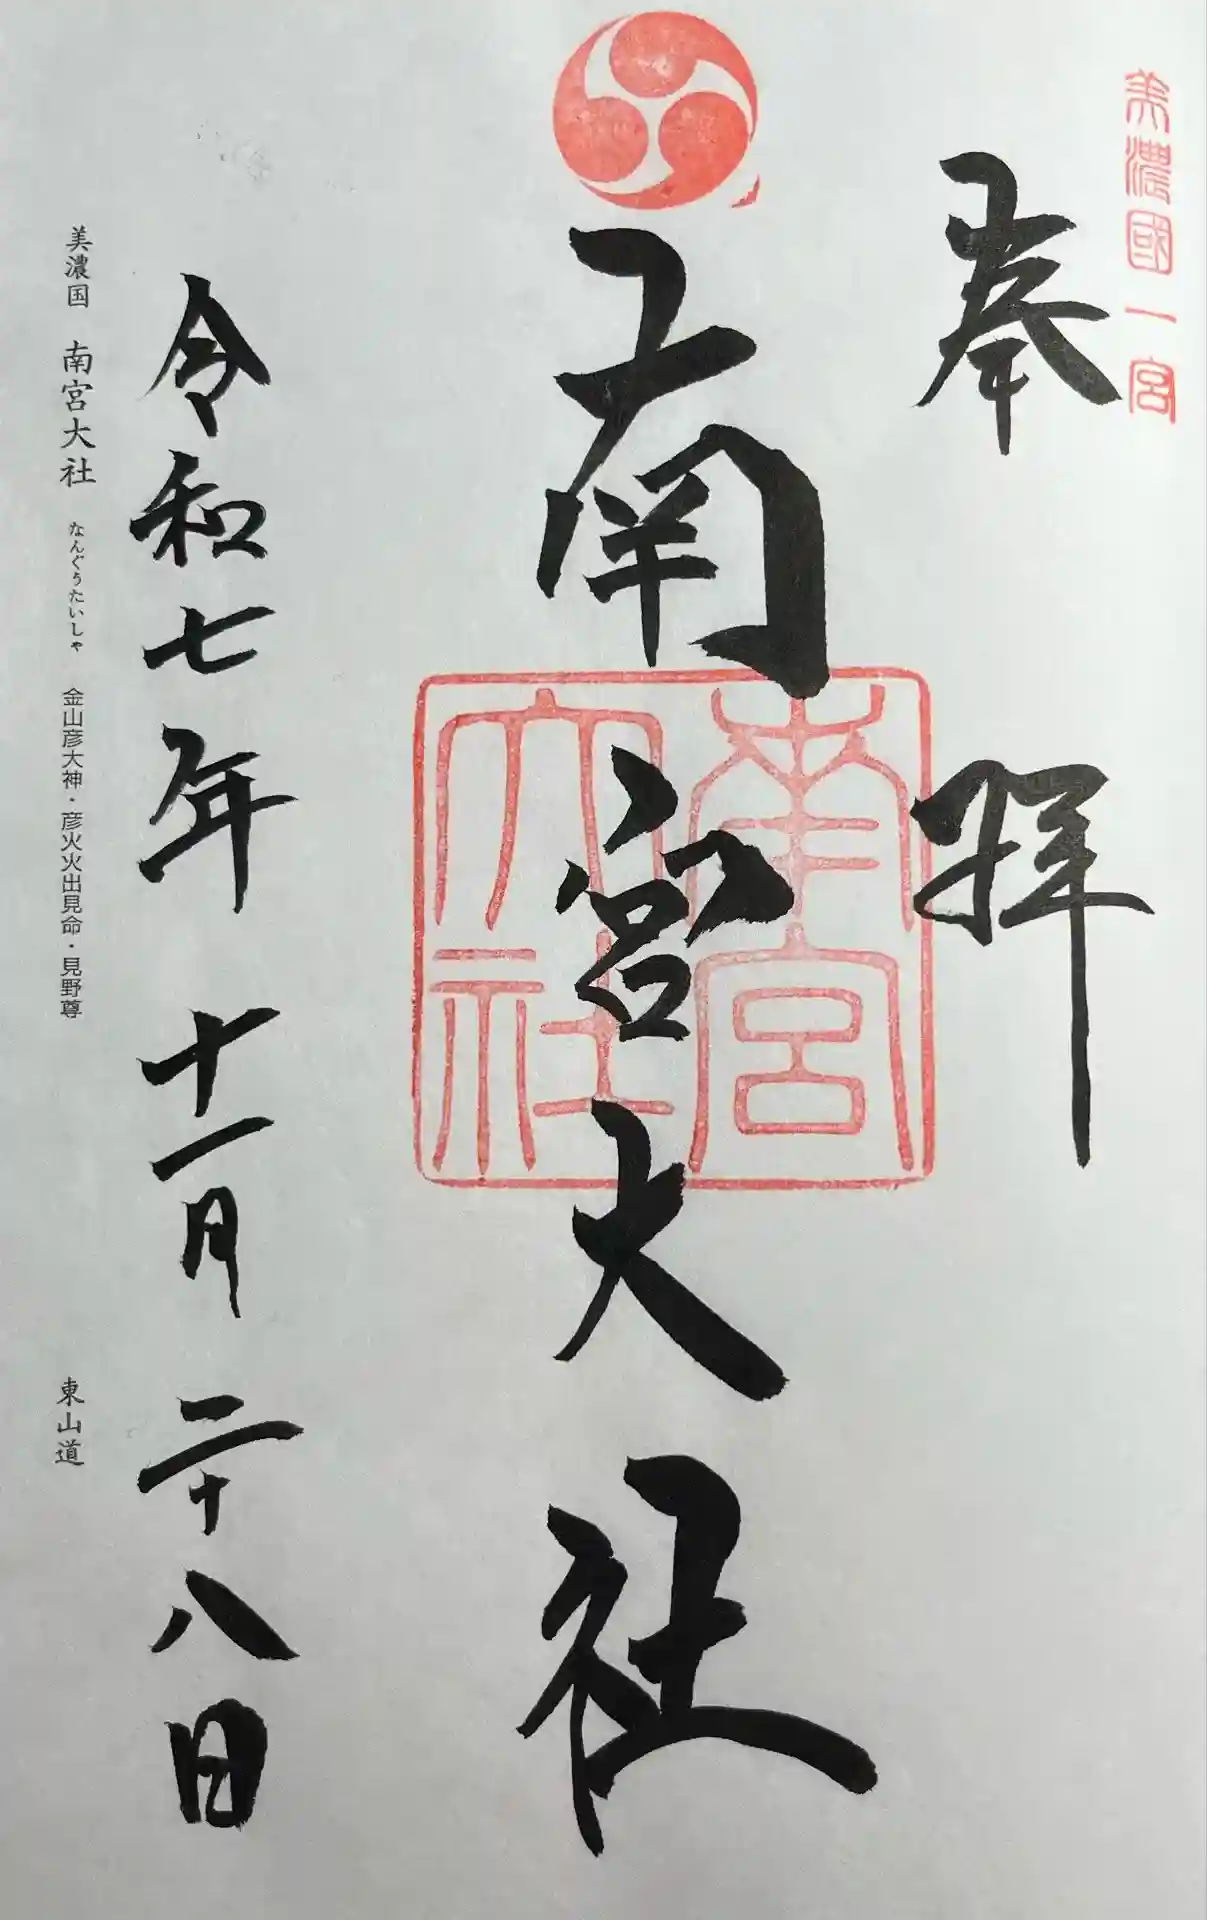 美濃國一宮
奉拝
南宮大社
南宮大社
令和七年十一月二十八日
美濃国 南宮大社 なんぐうたいしゃ 金山彦大神・彦火火出見命・見野尊 東山道